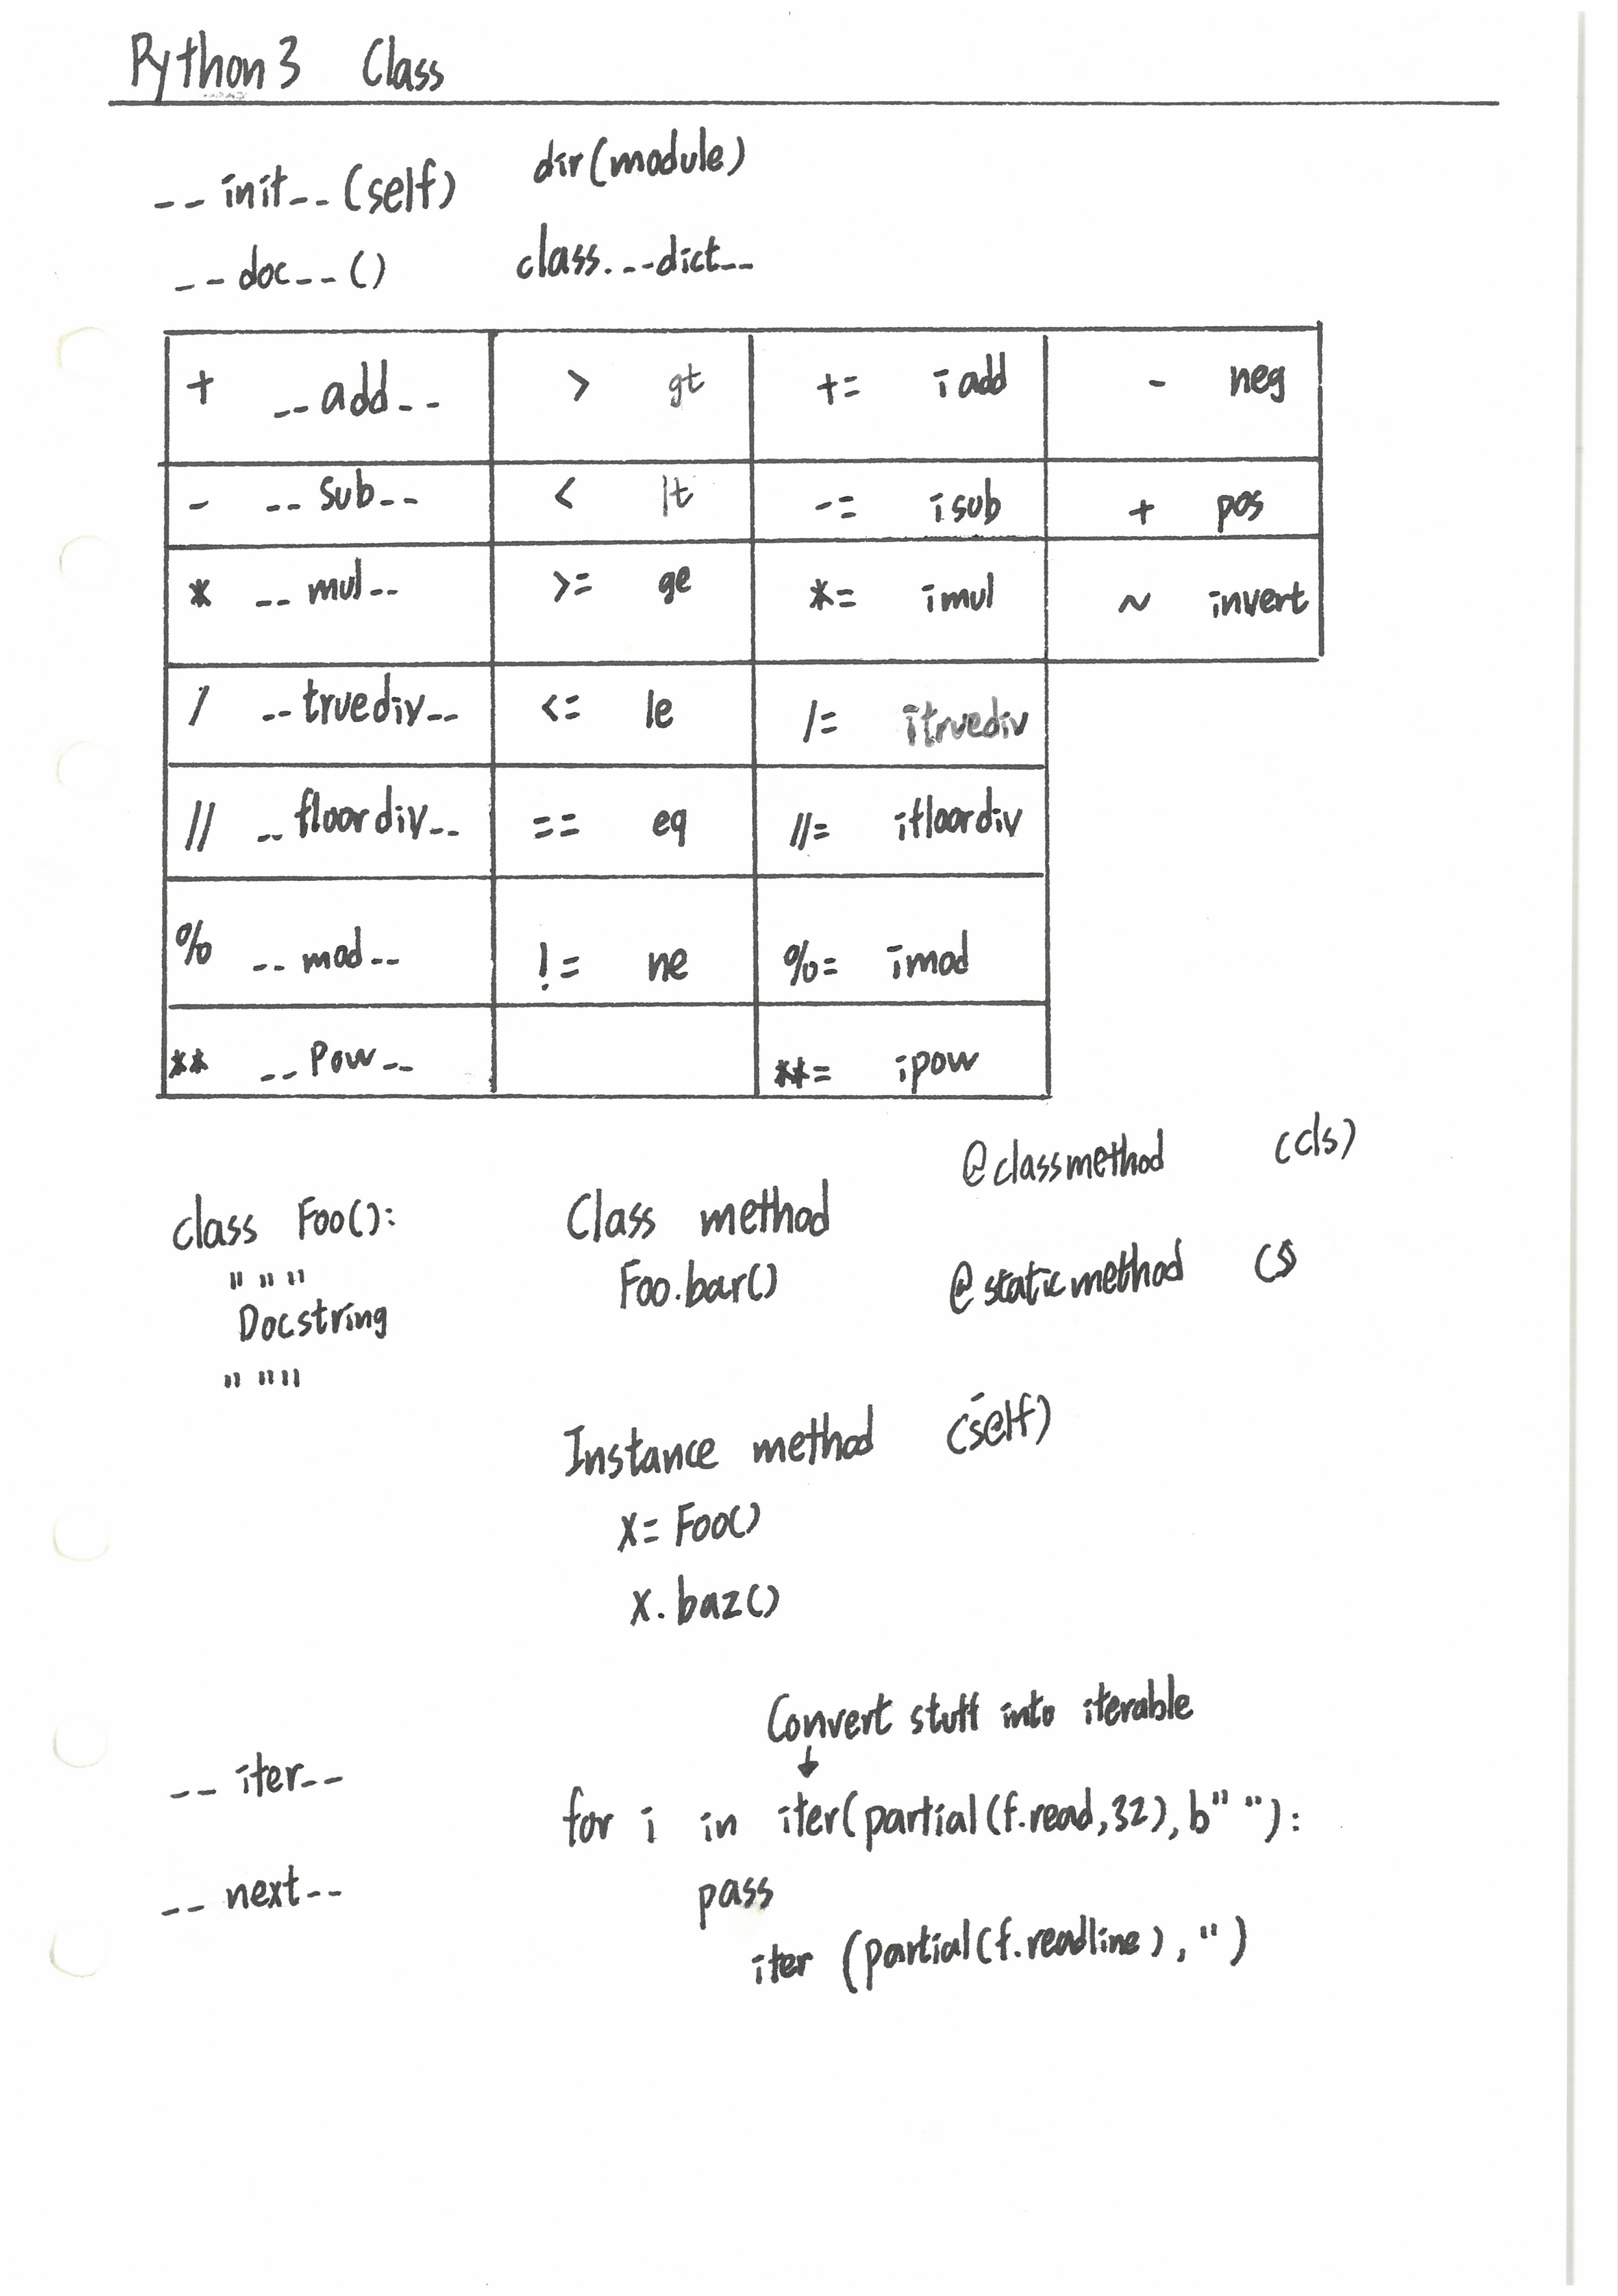 Python3 Class
__init__(self) dir(module)
__doc__() class.__dict__
+ __add__ > gt += iadd - neg
- __sub__ < lt -= isub + pos
* __mul__ >= ge *= imul ~ invert
/ __truediv__ <= le /= itruediv
// __floordiv__ == eq //= ifloordiv
% __mod__ != ne %= imod
** __Pow__ **= ipow
@classmethod (cls)
class Foo(): Class method
Foo.bar() @staticmethod
"""
Docstring
"""
Instance method (self)
x = Foo()
x.baz()
Convert stuff into iterable
__iter__
for i in iter(partial(f.read,32), b""):
__next__ pass
iter (partial(f.readline), '')